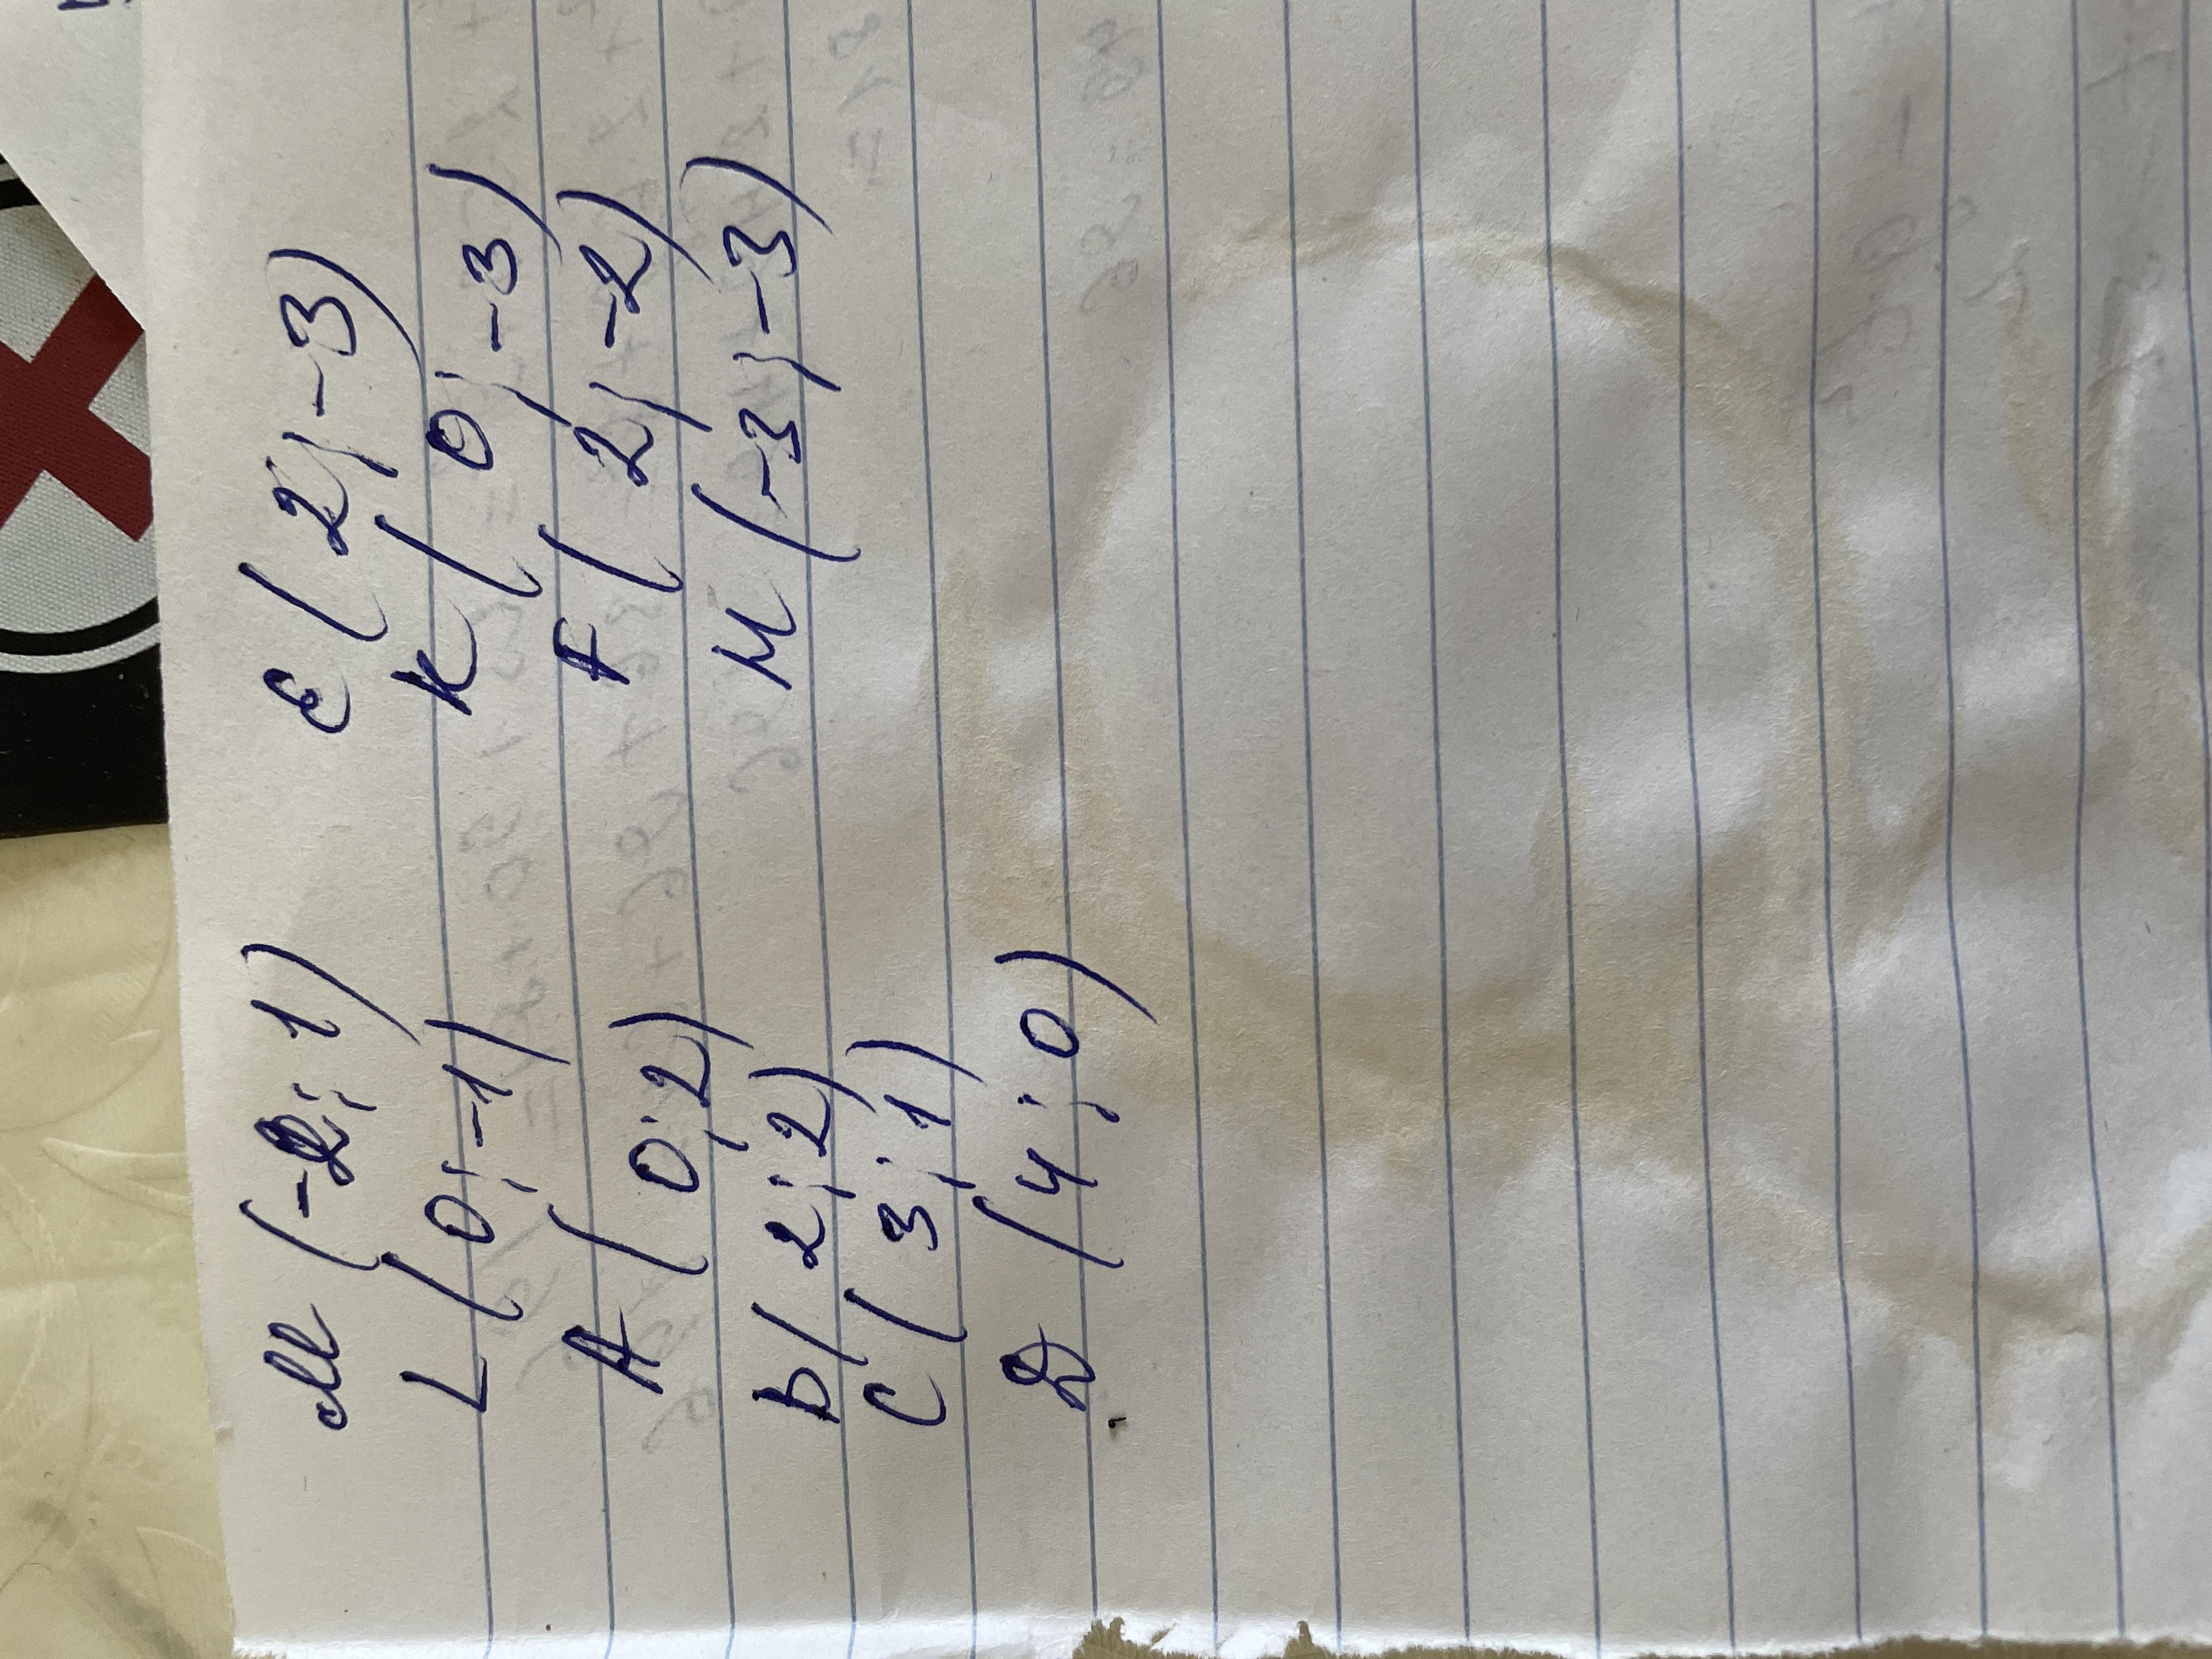 M (-2; 1)
L (0; -1)
A (0; 2)
B (2; 2)
C (3; 1)
D (4; 0)
E (2; -3)
K (0; -3)
F (2; -2)
M (-3; -3)